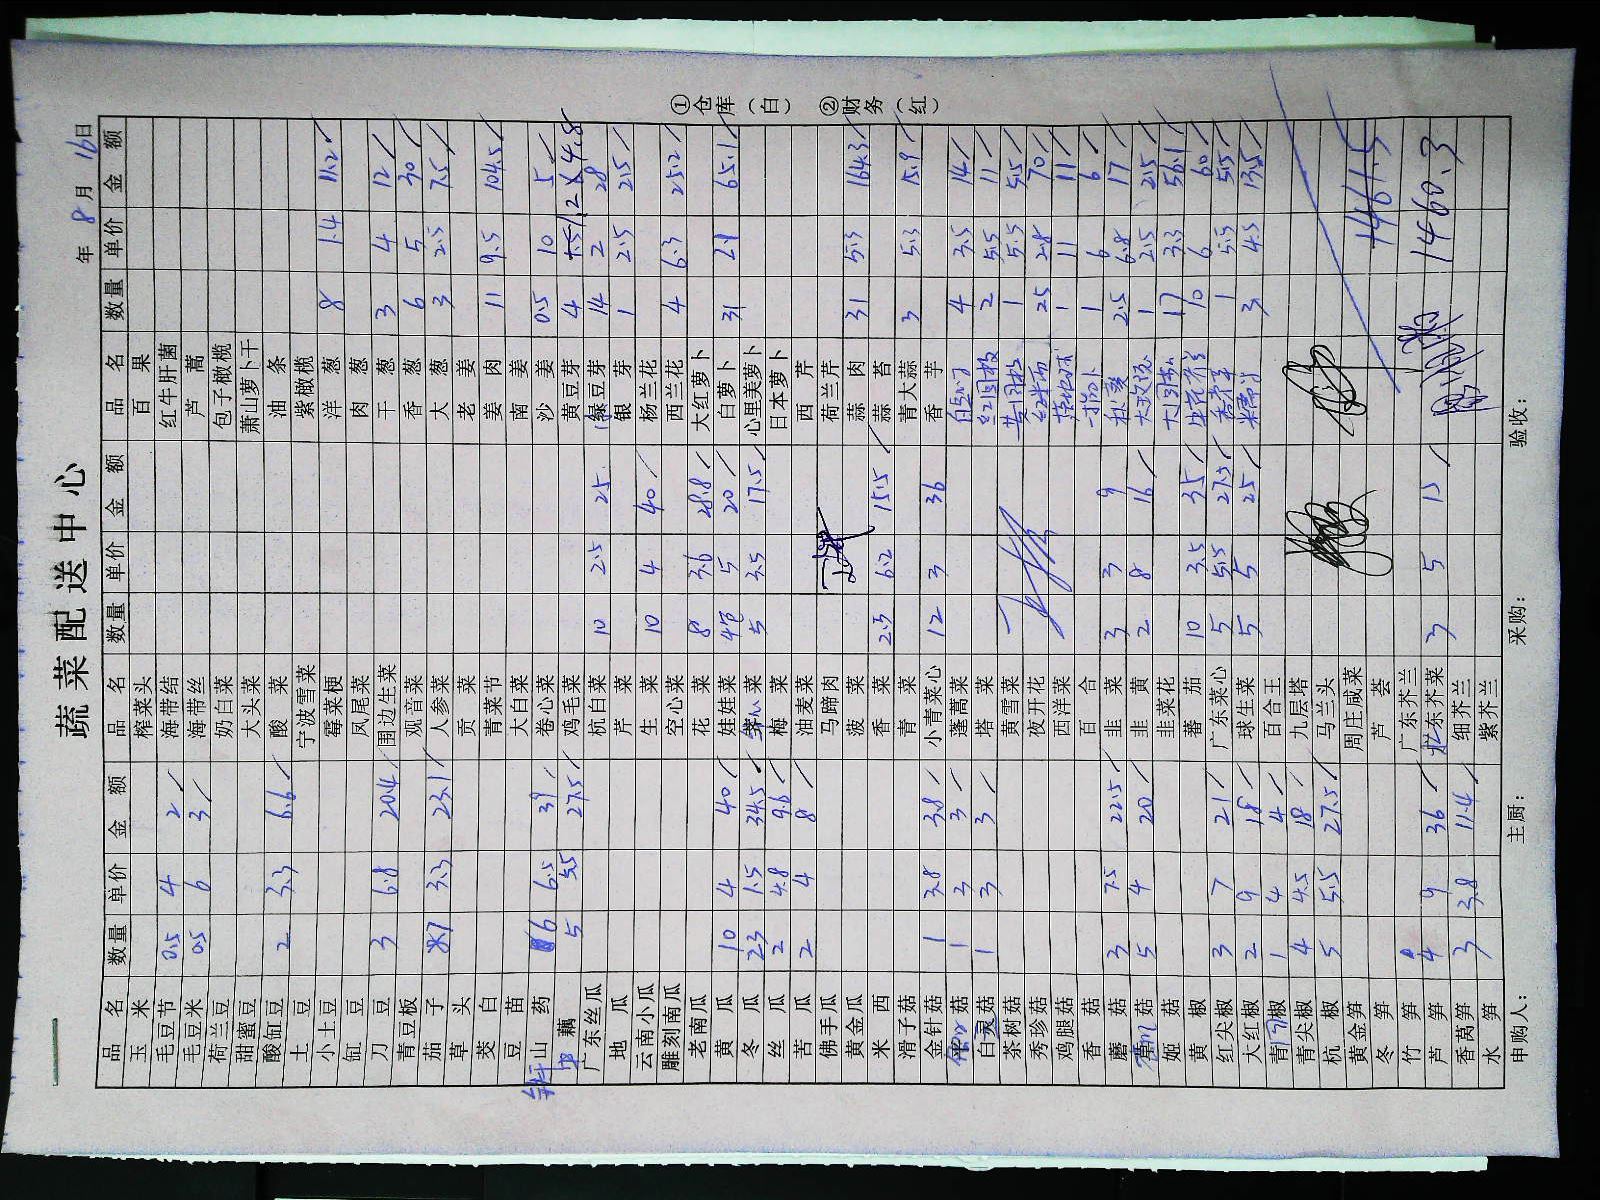 蔬菜配送中心
年 8 月 16 日
品名 数量 单价 金额 品名 数量 单价 金额 品名 数量 单价 金额
玉米 榨菜头 百果
毛豆节 0.5 4 2 海带结 红牛肝菌
毛豆米 0.5 6 3 海带丝 芦蒿
荷兰豆 奶白菜 包子橄榄
甜蜜豆 大头菜 萧山萝卜干
酸缸豆 2 3.3 6.6 酸菜 油条
土豆 宁波雪菜 紫橄榄
小土豆 霉菜梗 洋葱 8 1.4 11.2
缸豆 凤尾菜 肉葱
刀豆 3 6.8 20.4 围边生菜 干葱 3 4 12
青豆板 观音菜 香葱 6 5 30
茄子 7 3.3 23.1 人参菜 大葱 3 2.5 7.5
草头 贡菜 老姜
茭白 青菜节 姜肉 11 9.5 104.5
豆苗 大白菜 南姜
山药 6 6.5 39 卷心菜 沙姜 0.5 10 5
藕 5 5.5 27.5 鸡毛菜 黄豆芽 4 1.2 4.8
广东丝瓜 杭白菜 10 2.5 25 绿豆芽 14 2 28
地瓜 芹菜 银芽 1 2.5 2.5
云南小瓜 生菜 10 4 40 杨兰花
雕刻南瓜 空心菜 西兰花 4 6.3 25.2
老南瓜 花菜 8 3.6 28.8 大红萝卜
黄瓜 10 4 40 娃娃菜 4 5 20 白萝卜 31 2.1 65.1
冬瓜 23 1.5 34.5 菜 5 3.5 17.5 心里美萝卜
丝瓜 2 4.8 9.6 梅菜 日本萝卜
苦瓜 2 4 8 油麦菜 西芹
佛手瓜 马蹄肉 荷兰芹
黄金瓜 菠菜 蒜肉 31 5.3 164.3
米西 香菜 2.5 6.2 15.5 蒜苔
滑子菇 青菜 青大蒜 3 5.3 15.9
金针菇 1 3.8 3.8 小青菜心 12 3 36 香芋
菇 1 3 3 蓬蒿菜 4 3.5 14
白灵菇 1 3 3 塔菜 红圆椒 2 5.5 11
茶树菇 黄雪菜 黄圆椒 1 5.5 5.5
秀珍菇 夜开花 25 2.8 70
鸡腿菇 西洋菜 1 11 11
香菇 百合 1 6 6
蘑菇 3 7.5 22.5 韭菜 3 3 9 秋葵 2.5 6.8 17
菇 5 4 20 韭黄 2 8 16 1 2.5 2.5
姬菇 韭菜花 17 3.3 56.1
黄椒 蕃茄 10 3.5 35 10 6 60
红尖椒 3 7 21 广东菜心 5 5.5 27.5 1 5.5 5.5
大红椒 2 9 18 球生菜 5 5 25 3 4.5 13.5
青椒 1 4 4 百合王
青尖椒 4 4.5 18 九层塔
杭椒 5 5.5 27.5 马兰头
黄金笋 周庄咸菜
冬笋 芦荟 1461.5
竹笋 广东芥兰
芦笋 4 9 36 广东芥菜 3 5 15 1460.3
香莴笋 3 3.8 11.4 细芥兰
水笋 紫芥兰
申购人： 主厨： 采购： 验收：
①仓库（白） ②财务（红）